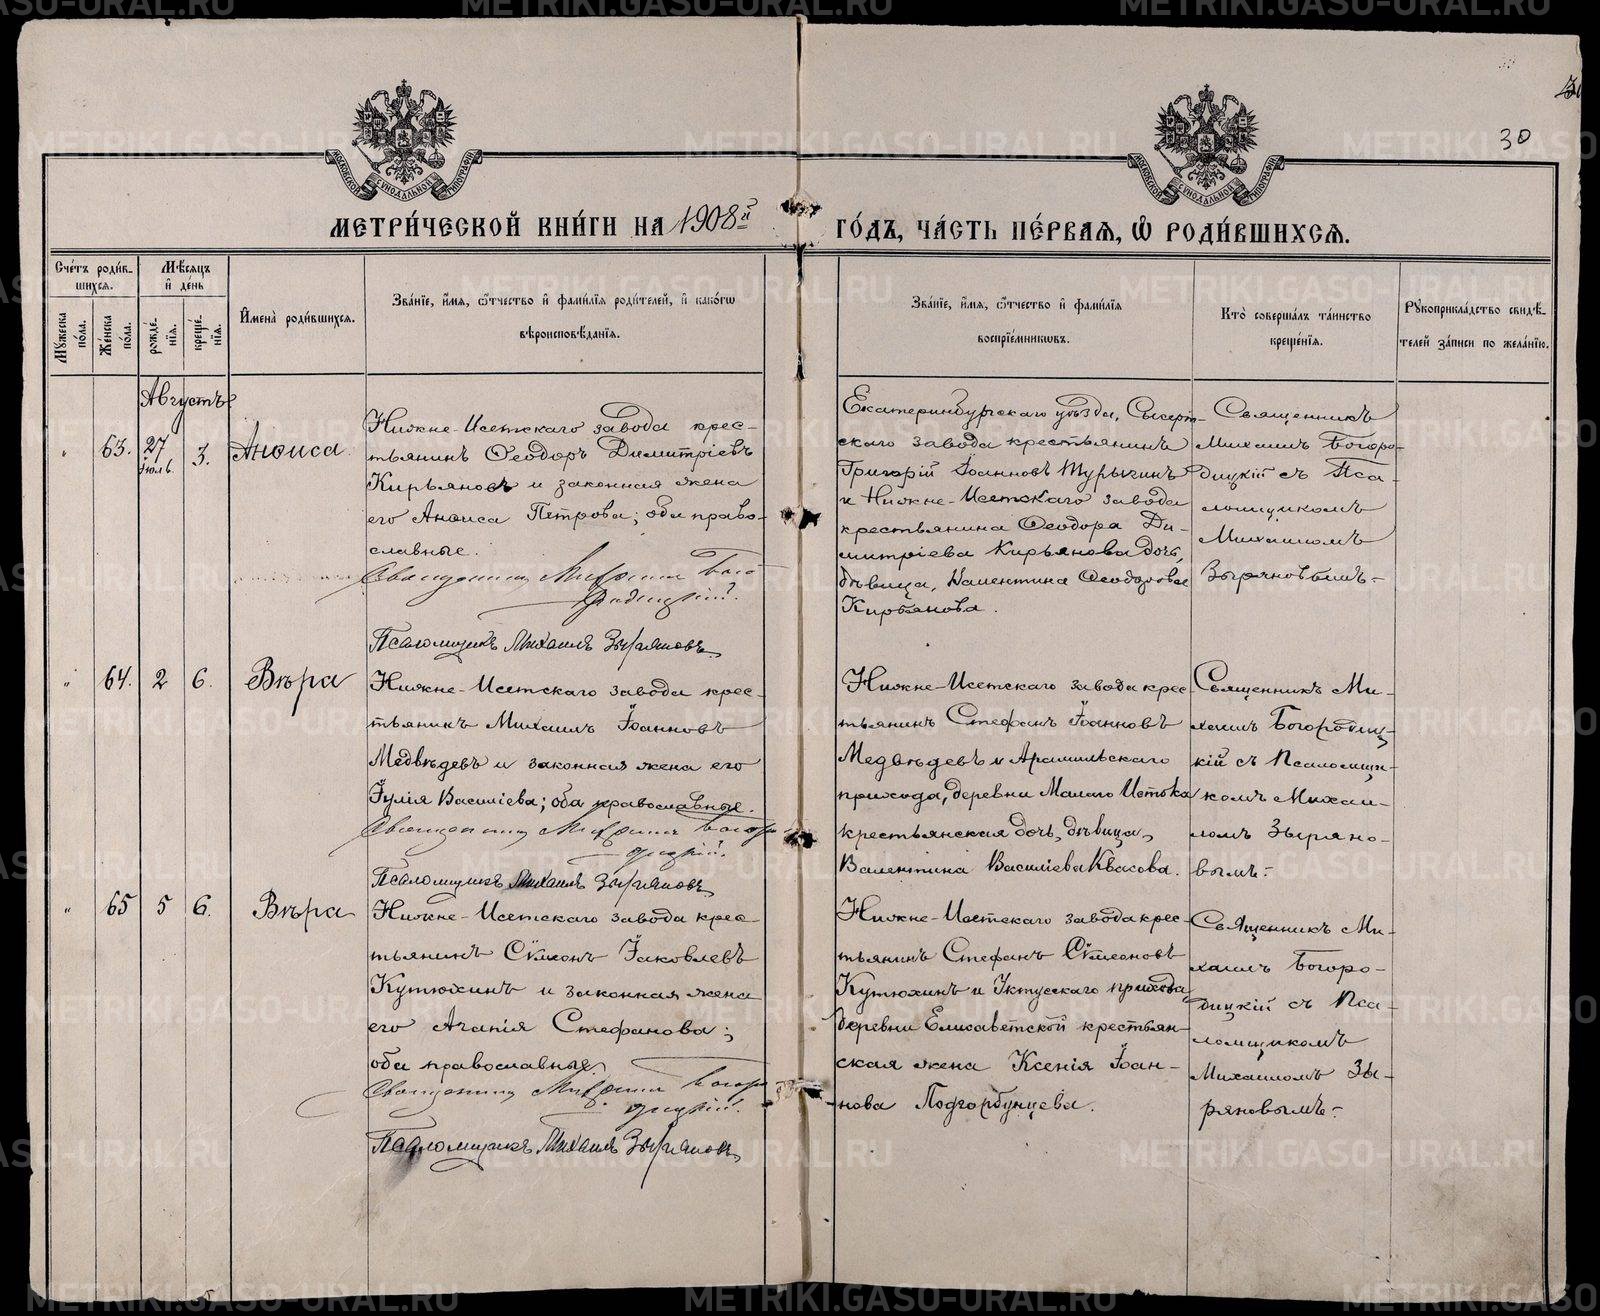 30
МЕТРИ́ЧЕСКОЙ КНИ́ГИ НА 1908й ГО́ДЪ, ЧА́СТЬ ПЕ́РВАЯ, Ѡ РОДИ́ВШИХСЯ.
МОСКОВСКОЙ СУНОДАЛЬНОЙ ТИПОГРАФІИ
МОСКОВСКОЙ СУНОДАЛЬНОЙ ТИПОГРАФІИ
Сче́тъ роди́в-
шихся.
Му́жеска
по́ла.
Же́нска
по́ла.
Мѣ́сяцъ
и҆ де́нь
рожде́-
нїя.
креще́-
нїя.
И҆мена̀ роди́вшихся.
Зва́нїе, и҆́мя, ѻ҆́тчество и҆ фами́лїя роди́телей, и҆ како́гѡ
вѣроисповѣ́данїя.
Зва́нїе, и҆́мя, ѻ҆́тчество и҆ фами́лїя
воспрїе́мникѡвъ.
Кто̀ соверша́лъ та́инство
креще́нїя.
Рꙋкоприкла́дство свидѣ́-
телей за́писи по жела́нїю.
Августъ
" 63. 27 3. Анѳиса
Іюль
Нижне-Исетскаго завода крес-
тьянинъ Ѳеодоръ Димитріевъ
Кирьяновъ и законная жена
его Анѳиса Петрова; оба право-
славные.
Священникъ Михаилъ Бого-
родицкій.
Псаломщикъ Михаилъ Зыряновъ
Екатеринбургскаго уѣзда, Сысерт-
скаго завода крестьянинъ
Григорій Іоанновъ Турыгинъ
и Нижне-Исетскаго завода
крестьянина Ѳеодора Ди-
митріева Кирьянова дочь,
дѣвица, Валентина Ѳеодорова
Кирьянова.
Священникъ
Михаилъ Богоро-
дицкій съ Пса-
ломщикомъ
Михаиломъ
Зыряновымъ-
" 64. 2 6. Вѣра
Нижне-Исетскаго завода крес-
тьянинъ Михаилъ Іоанновъ
Медвѣдевъ и законная жена его
Іулія Василіева; оба православные.
Священникъ Михаилъ Богоро-
дицкій.
Псаломщикъ Михаилъ Зыряновъ
Нижне-Исетскаго завода крес-
тьянинъ Стефанъ Іоанновъ
Медвѣдевъ и Арамильскаго
прихода, деревни Малаго Истока
крестьянская дочь, дѣвица,
Валентина Василіева Квасова.
Священникъ Ми-
хаилъ Богородиц-
кій съ Псаломщи-
комъ Михаи-
ломъ Зыряно-
вымъ-
" 65 5 6. Вѣра
Нижне-Исетскаго завода крес-
тьянинъ Сѵмеонъ Іаковлевъ
Кутюхинъ и законная жена
его Агапія Стефанова;
оба православные.
Священникъ Михаилъ Богоро-
дицкій.
Псаломщикъ Михаилъ Зыряновъ
Нижне-Исетскаго завода крес-
тьянинъ Стефанъ Сѵмеоновъ
Кутюхинъ и Уктусскаго прихода
деревни Елисаветской крестьян-
ская жена Ксенія Іоан-
нова Подгорбунцева.
Священникъ Ми-
хаилъ Богоро-
дицкій съ Пса-
ломщикомъ
Михаиломъ Зы-
ряновымъ-
METRIKI.GASO-URAL.RU